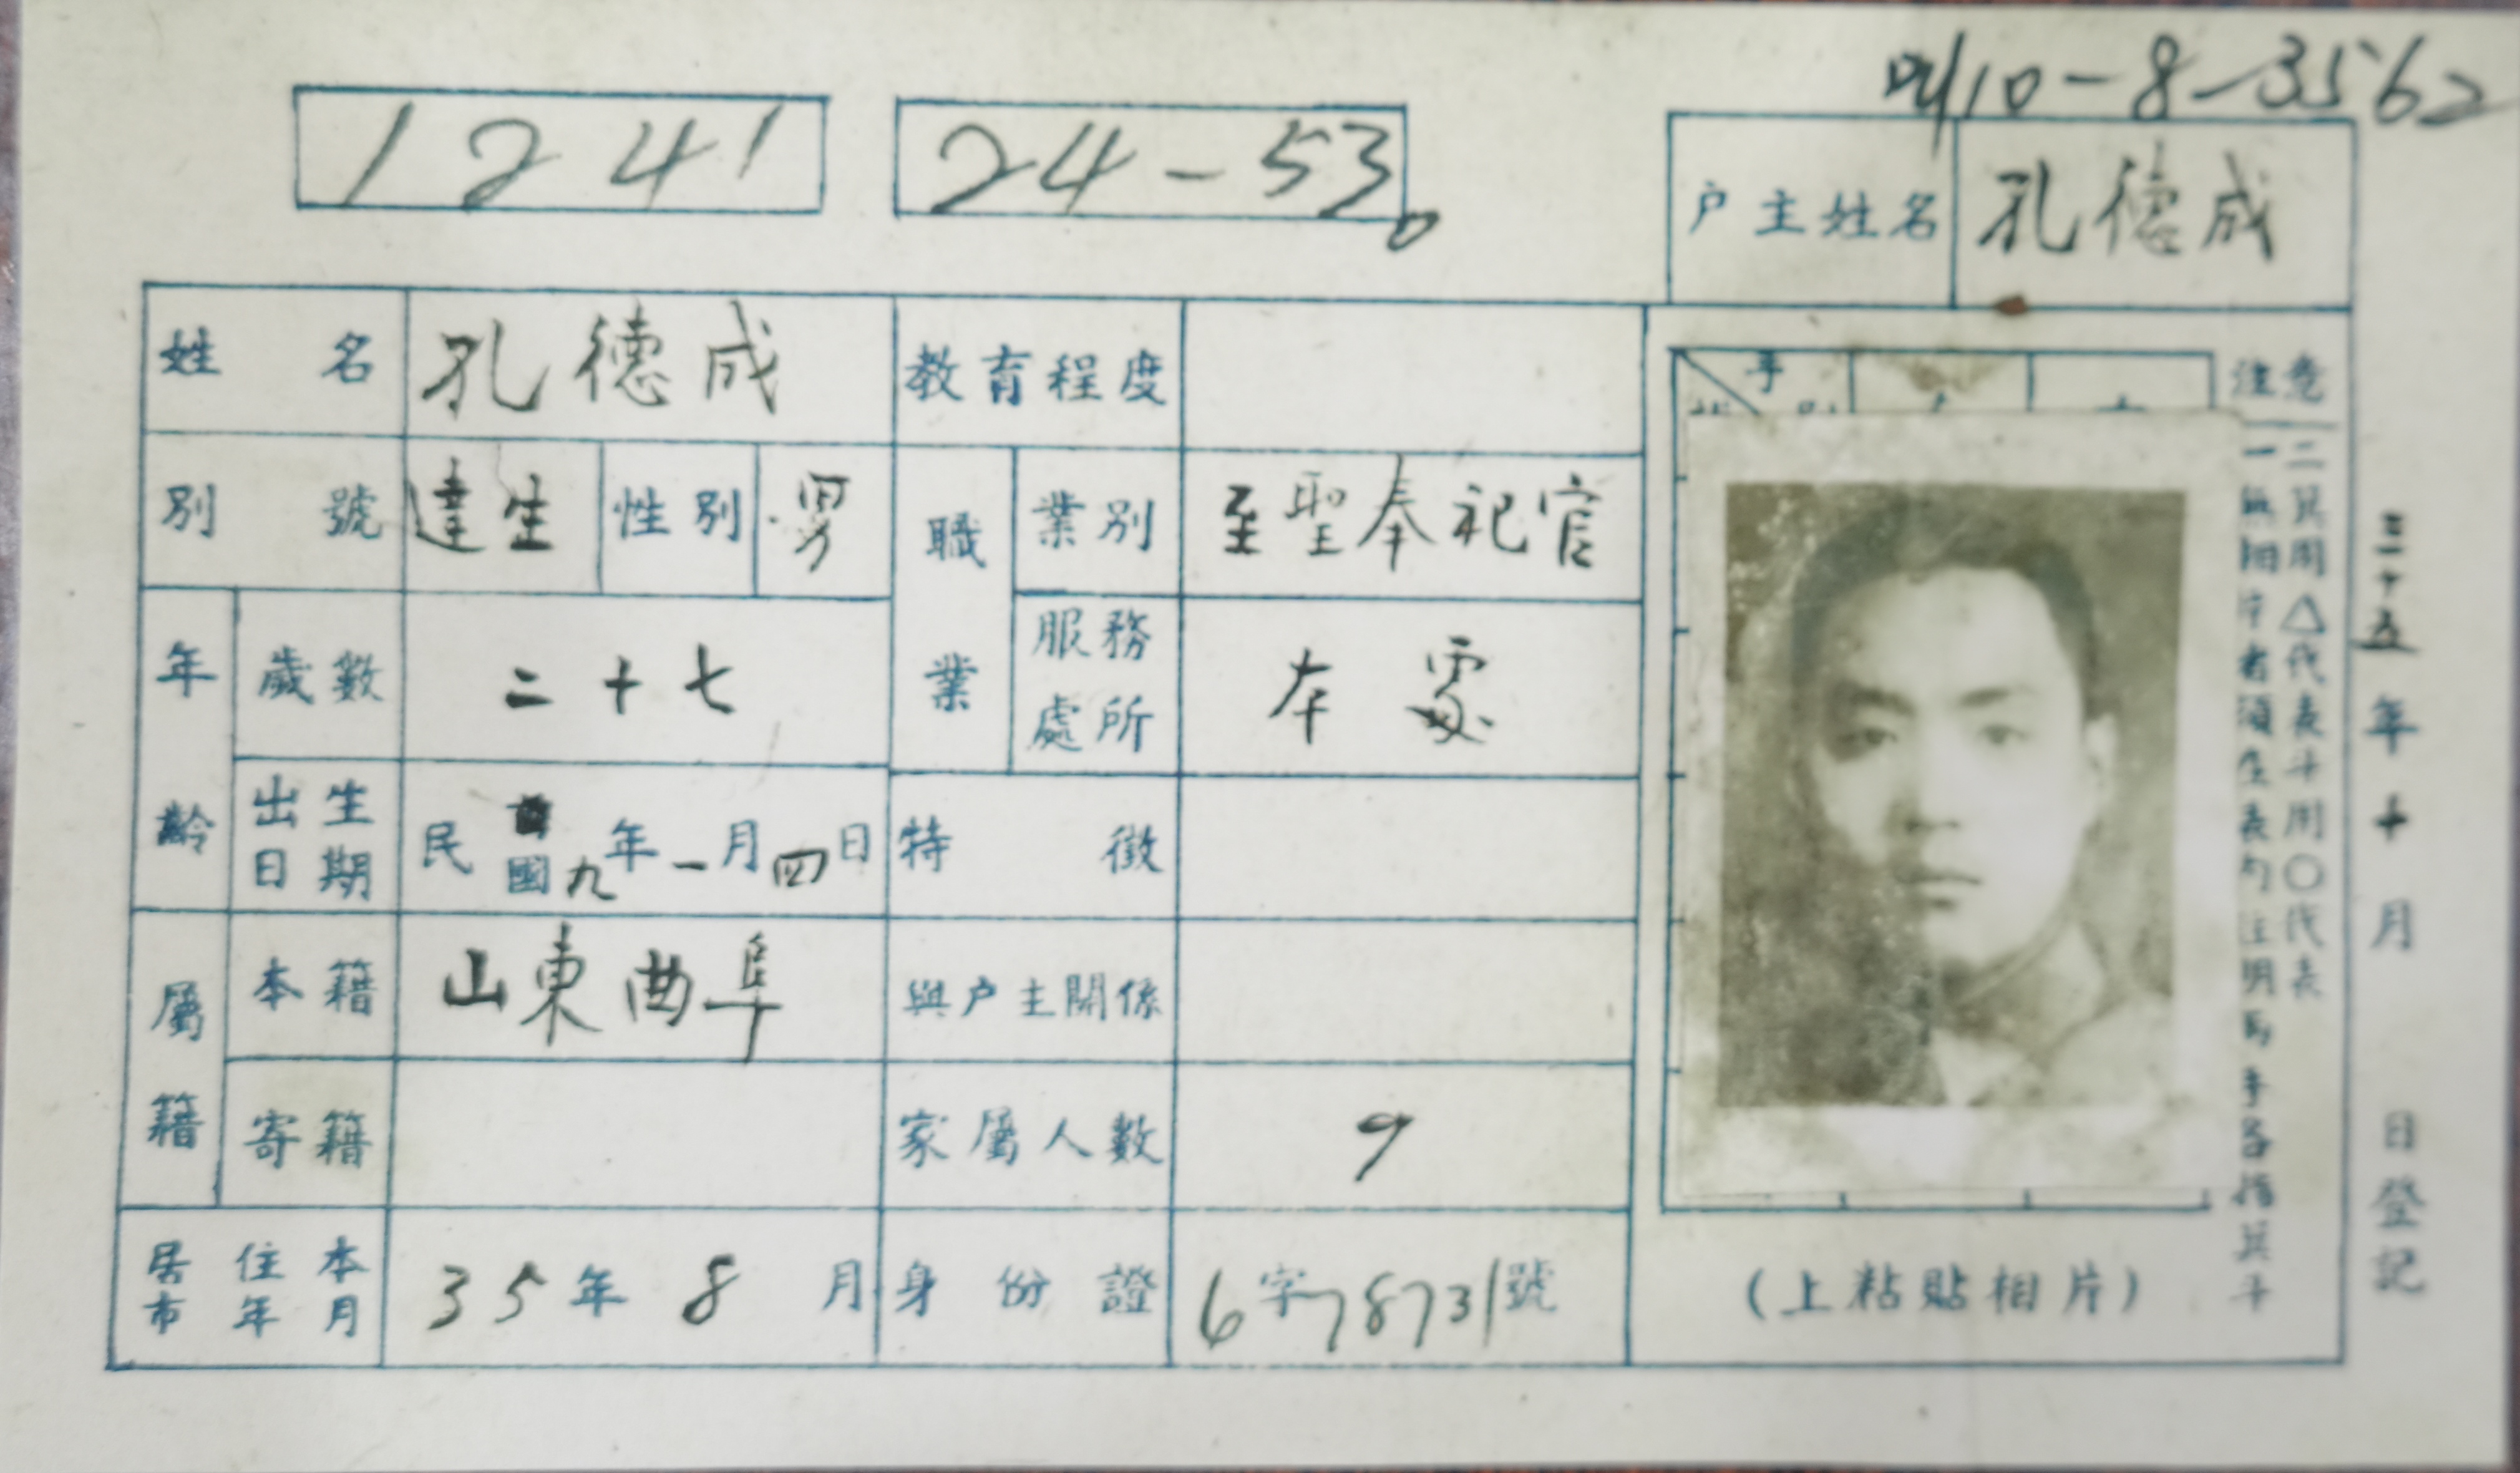 10-8-3562
1241
24-53
户主姓名 孔德成
姓名 孔德成 教育程度
別號 達生 性別 男 職業 業別 至聖奉祀官
年齡 歲數 二十七 服務處所 本處
出生日期 民國九年一月四日 特徵
屬籍 本籍 山東曲阜 與户主關係
寄籍 家屬人數 9
居住本市年月 35年8月 身份證 6字78731號
注意
一無相片者須在表內注明 手各指箕斗
二箕用△代表斗用○代表
(上粘貼相片)
三十五年十月 日登記